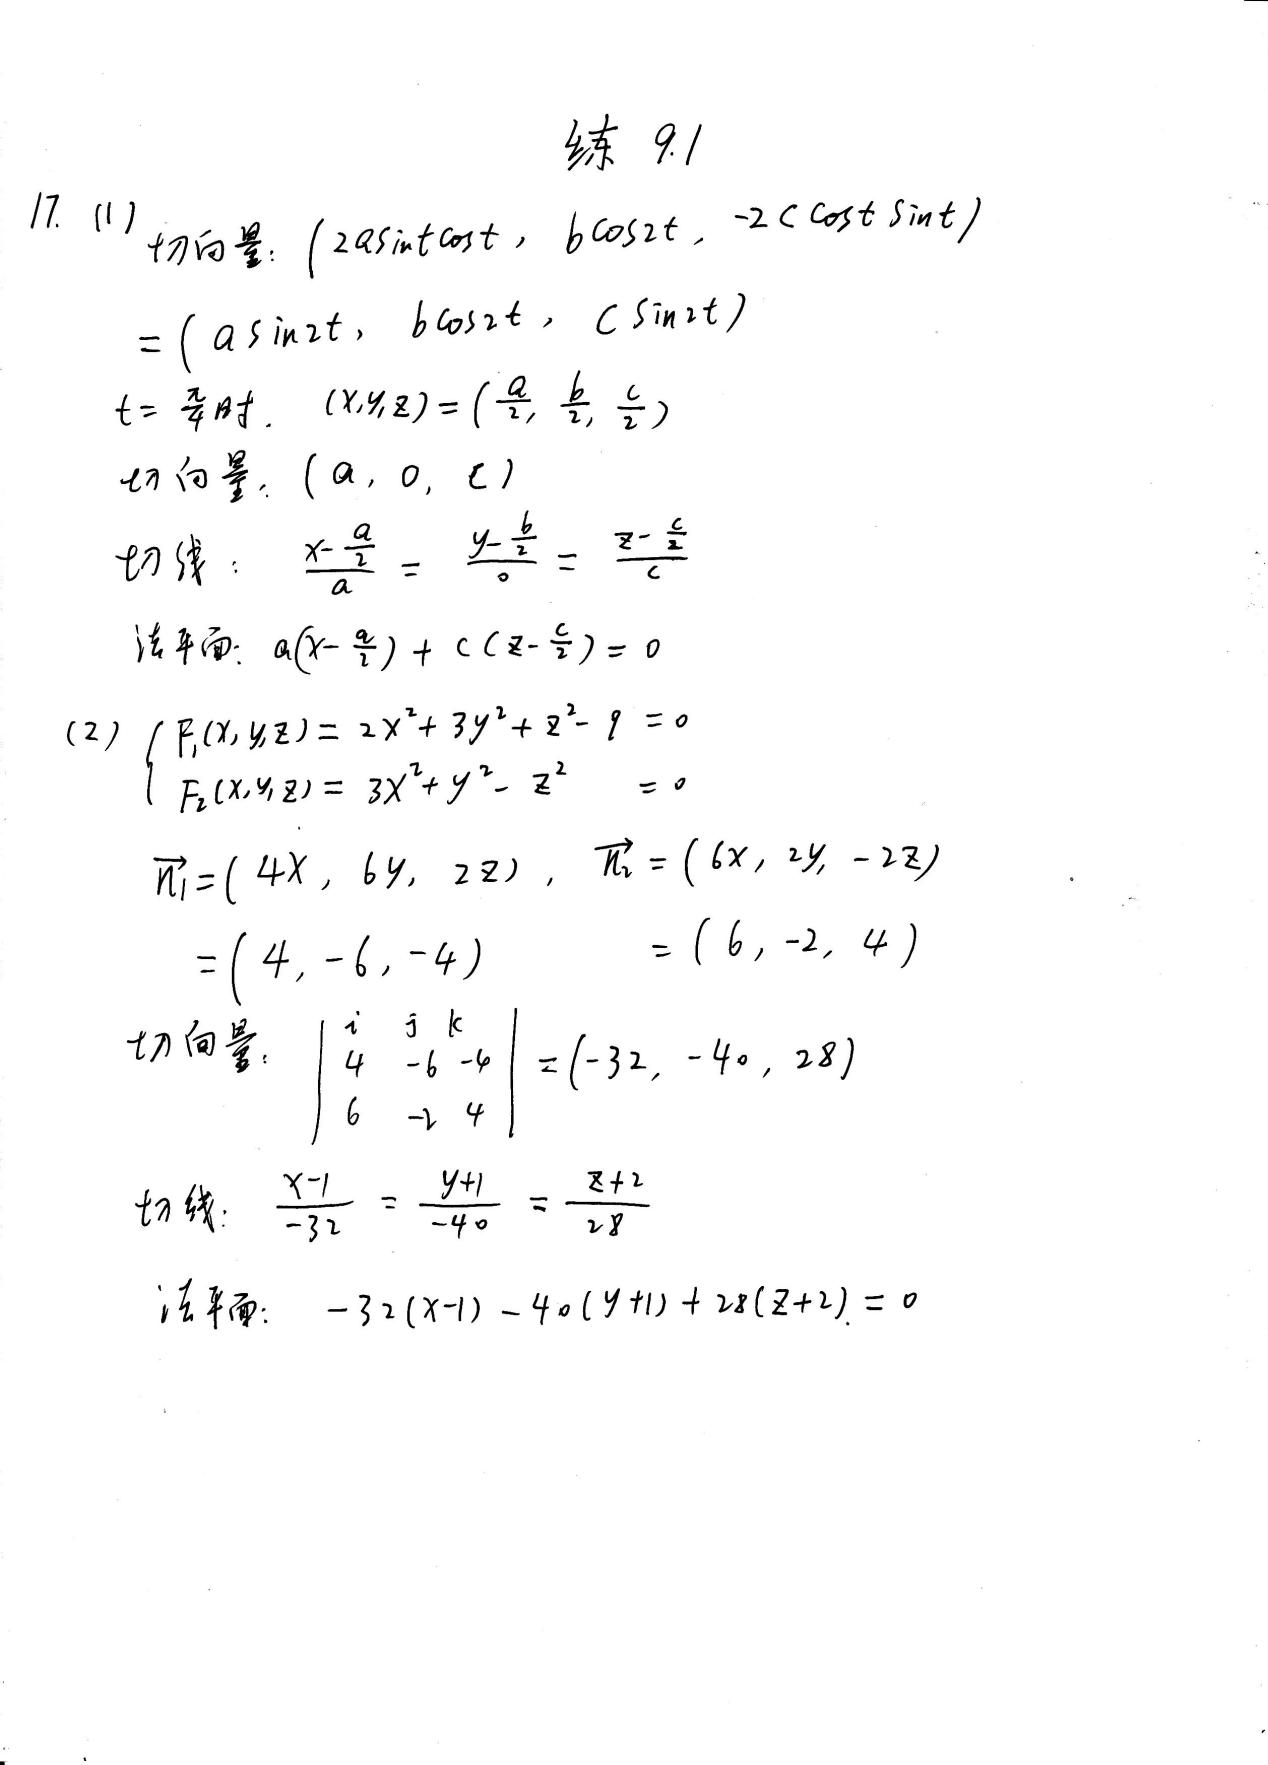 练 9.1
17. (1)
切向量: (2asintcost, bcos2t, -2ccostsint)
= (asin2t, bcos2t, csin2t)
t = π/4时. (x,y,z) = (a/2, b/2, c/2)
切向量: (a, 0, c)
切线: (x-a/2)/a = (y-b/2)/0 = (z-c/2)/c
法平面: a(x-a/2) + c(z-c/2) = 0
(2) { F₁(x,y,z) = 2x²+3y²+z²-9 = 0
F₂(x,y,z) = 3x²+y²-z² = 0
n₁→ = (4x, 6y, 2z), n₂→ = (6x, 2y, -2z)
= (4, -6, -4) = (6, -2, 4)
切向量: | i j k |
| 4 -6 -4 | = (-32, -40, 28)
| 6 -2 4 |
切线: (x-1)/-32 = (y+1)/-40 = (z+2)/28
法平面: -32(x-1) - 40(y+1) + 28(z+2) = 0